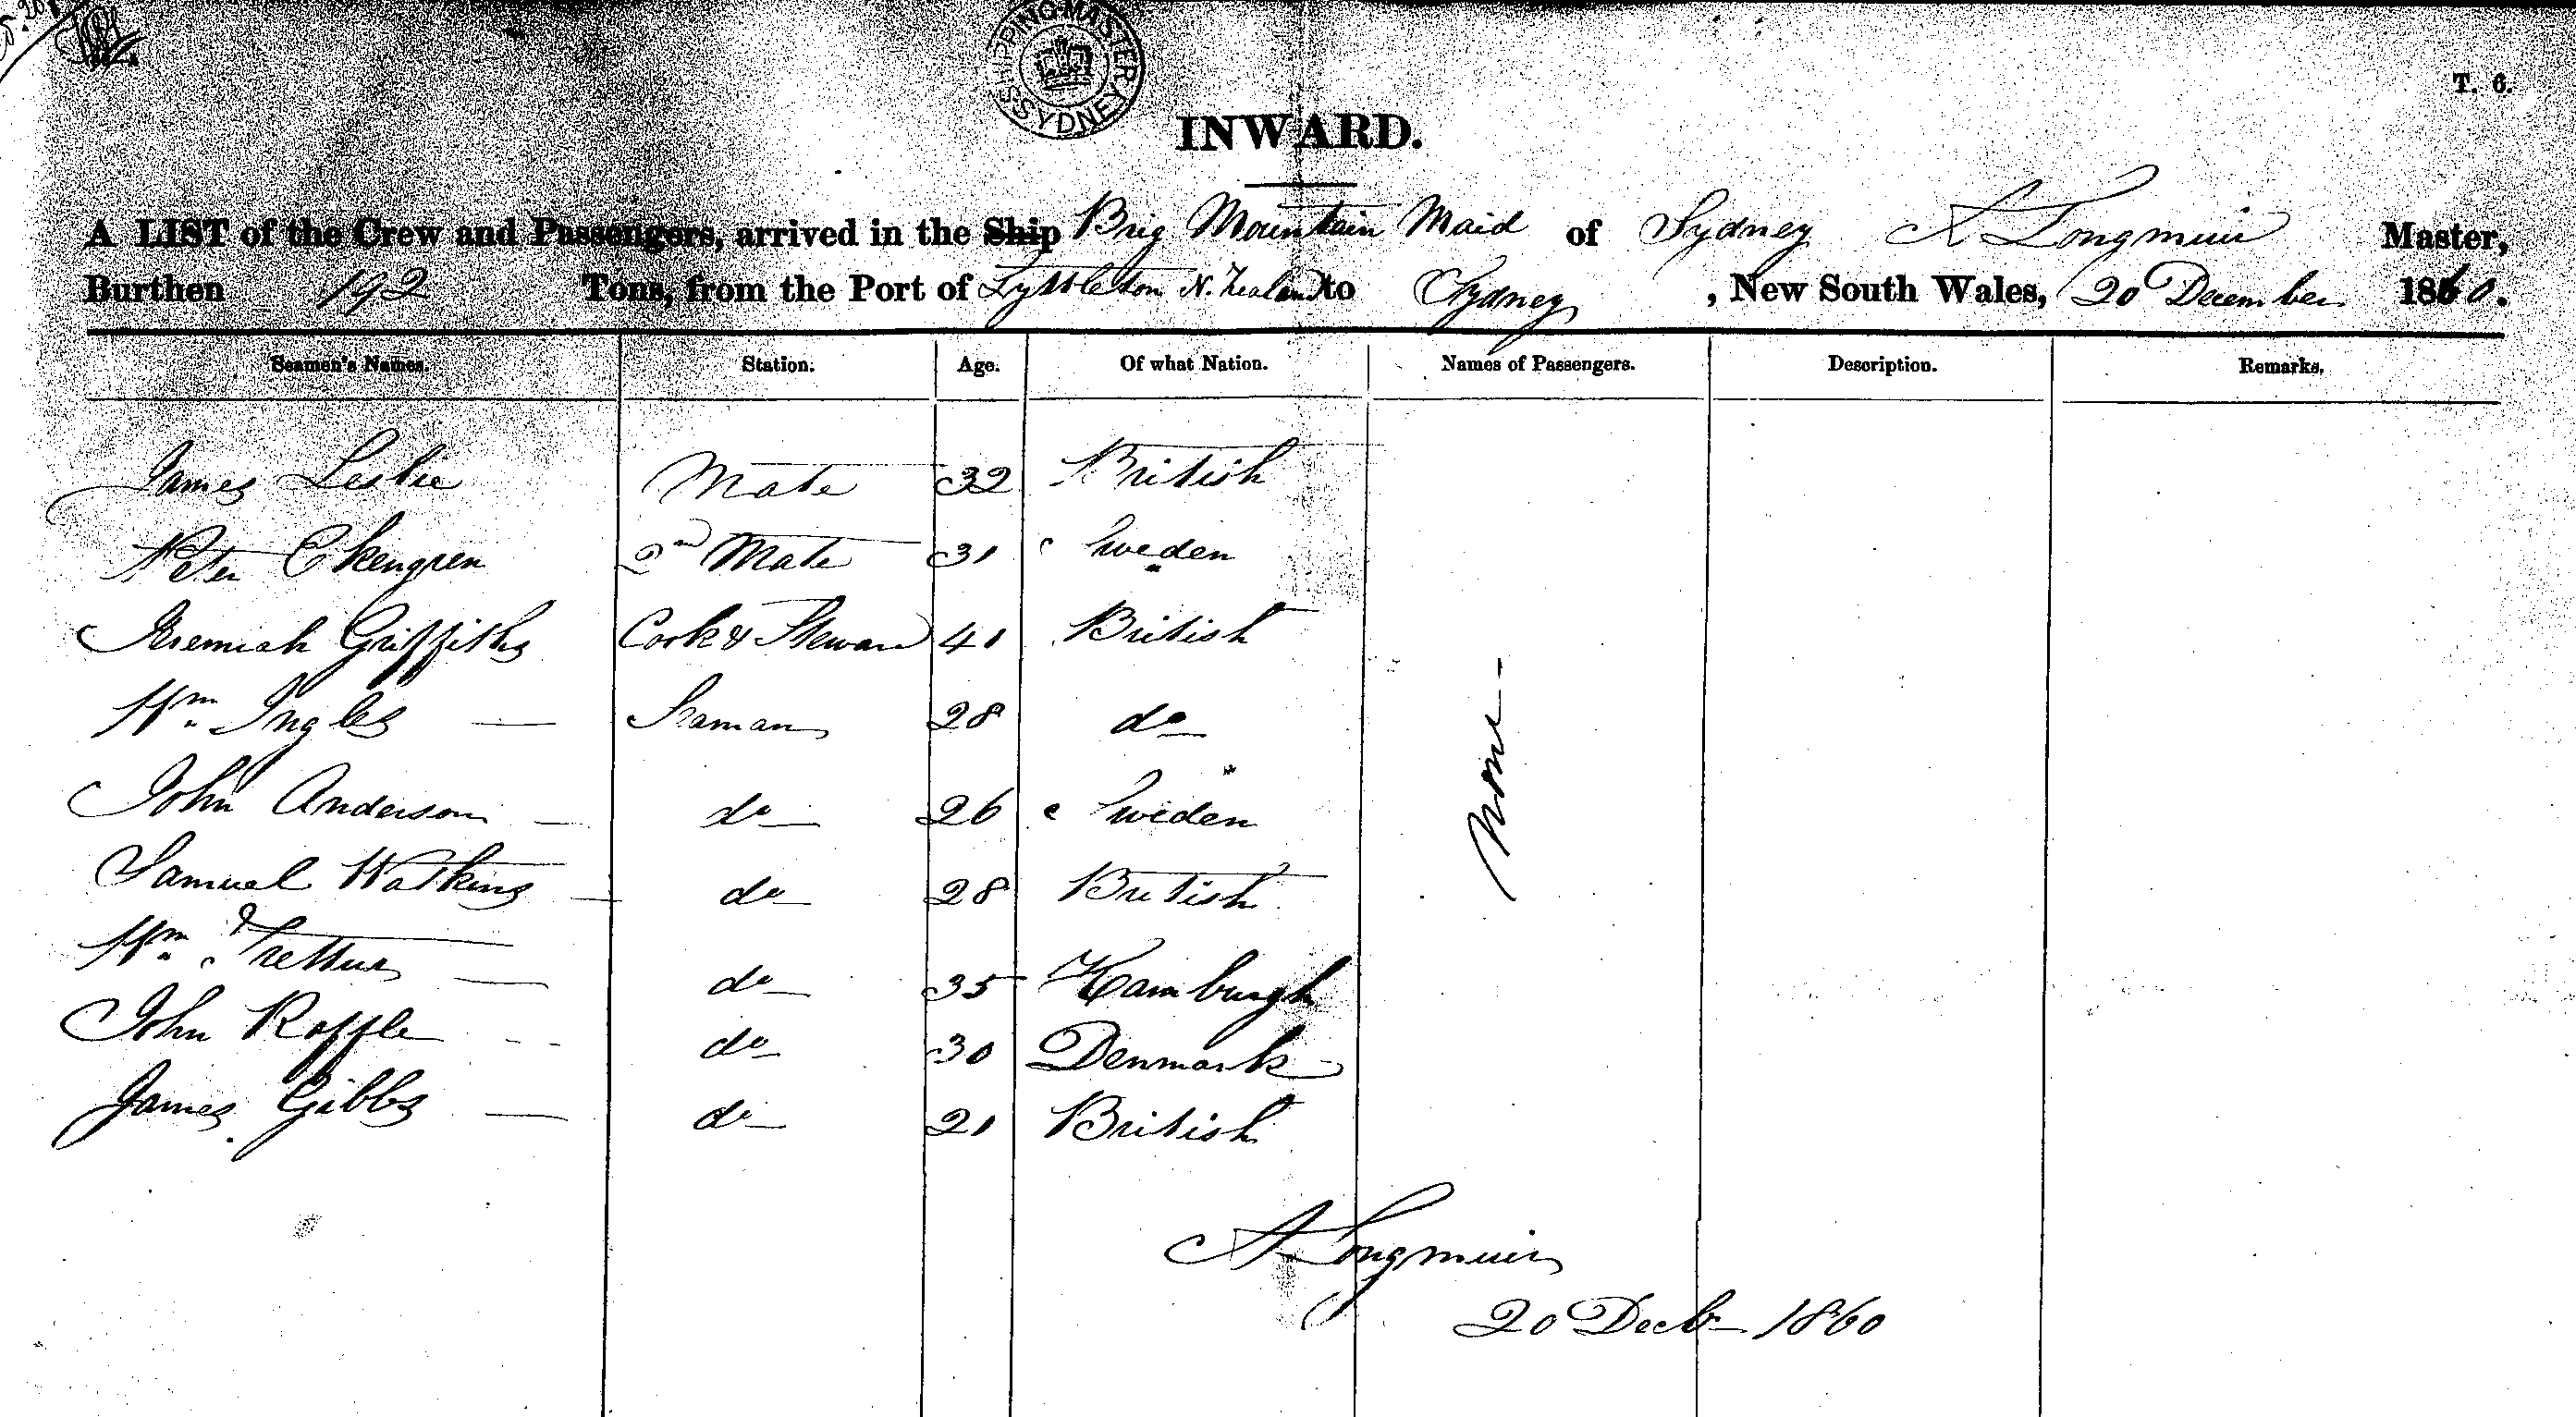 SHIPPING-MASTER SYDNEY
T. 6.
INWARD.
A LIST of the Crew and Passengers, arrived in the Ship Brig Mountain Maid of Sydney A Longmuir Master,
Burthen 192 Tons, from the Port of Lyttleton N. Zealand to Sydney, New South Wales, 20 December 1860.
Seamen's Names. Station. Age. Of what Nation. Names of Passengers. Description. Remarks.
James Leslie Mate 32 British
Peter Ekengren 2nd Mate 31 Sweden
Jeremiah Griffiths Cook & Steward 41 British
Wm Ingles Seaman 28 do
John Anderson do 26 Sweden
Samuel Watkins do 28 British
Wm do 35 Hamburgh
John Roffle do 30 Denmark
James Gibbs do 21 British
None
A Longmuir
20 Decb 1860